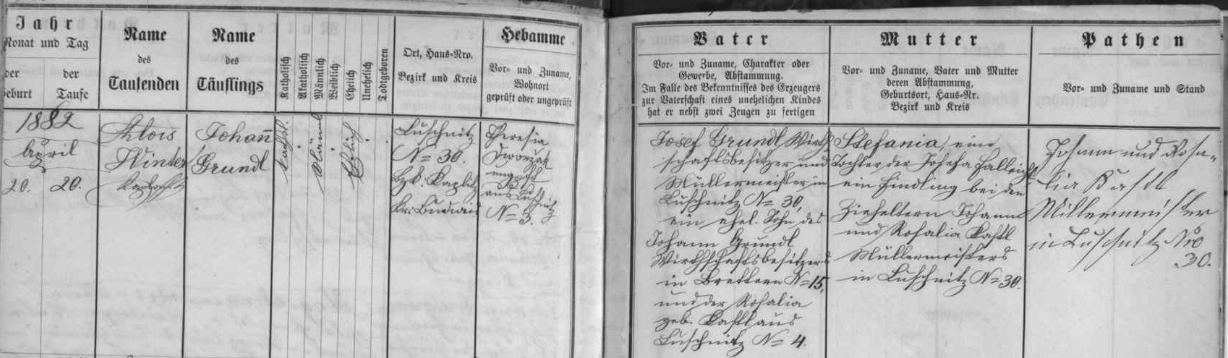 Jahr
Monat und Tag
der Geburt
der Taufe
Name
des
Taufenden
Name
des
Täuflings
Katholisch
Akatholisch
Männlich
Weiblich
Ehelich
Unehelich
Todtgeboren
Ort, Haus-Nro.
Bezirk und Kreis
Hebamme
Vor- und Zuname,
Wohnort
geprüft oder ungeprüft
Vater
Vor- und Zuname, Charakter oder
Gewerbe, Abstammung.
Im Falle des Bekenntnisses des Erzeugers
zur Vaterschaft eines unehelichen Kindes
hat er nebst zwei Zeugen zu fertigen
Mutter
Vor- und Zuname, Vater und Mutter
deren Abstammung,
Geburtsort, Haus-Nr.
Bezirk und Kreis
Pathen
Vor- und Zuname und Stand
1882
April
20. 20.
Alois
Winter
Johañ
Grundl
Kathol.
Männl.
Ehlich
Luschnitz
N= 30.
Bzk. Kaplitz
Kr. Budweis
Theresia
aus Luschnitz
N= 3.
Josef Grundl Wirth-
schaftsbesitzer und
Müllermeister in
Luschnitz N= 30,
ein ehel. Sohn des
Johann Grundl
Wirthschaftsbesitzers
in Brettern N= 15,
und der Rosalia
geb. Kastl aus
Luschnitz N= 4.
Stefania, eine
Tochter der Josefa
ein Findling bei den
Ziehältern Johann
und Rosalia Kastl
Müllermeisters
in Luschnitz N= 30.
Johann und Rosa-
lia Kastl
Müllermeister
in Luschnitz Nro
30.